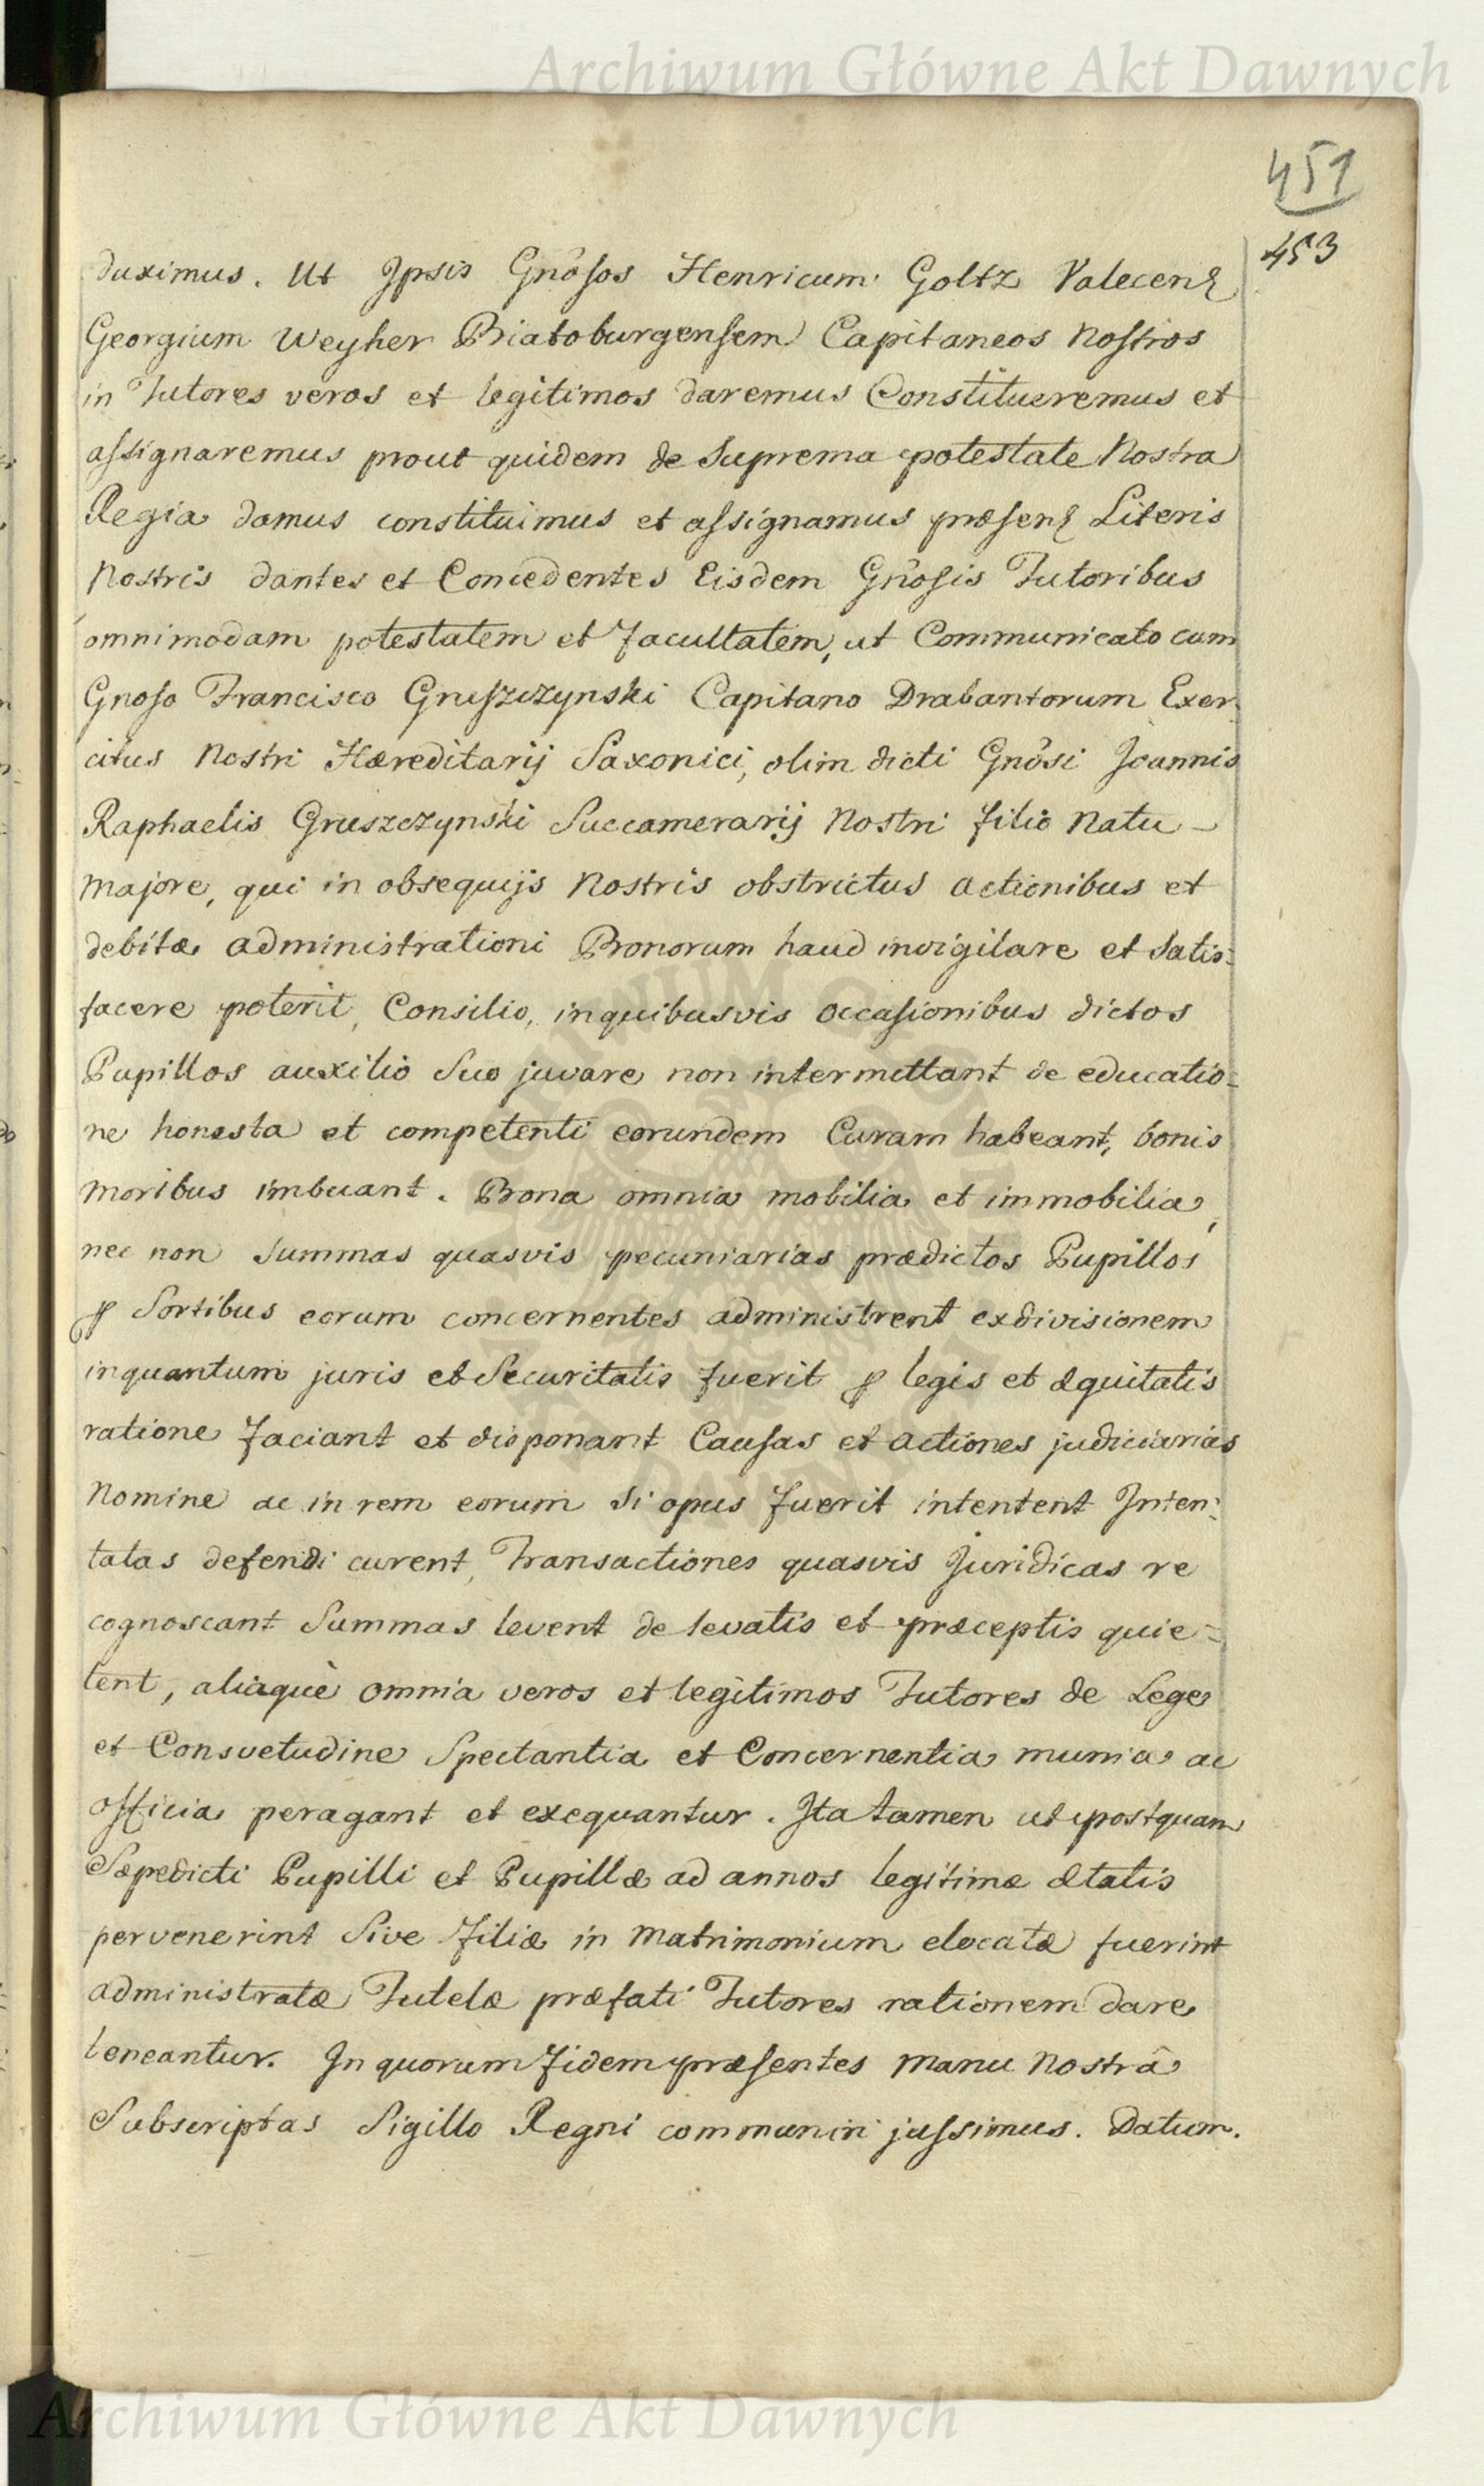 Archiwum Główne Akt Dawnych
451
453
duximus. Ut Ipsis Gnôsos Henricum Goltz Valecen
Georgium Weyher Biatoburgensem Capitaneos Nostros
in Tutores veros et legitimos daremus Constitueremus et
assignaremus prout quidem de Suprema potestate Nostra
Regia damus constituimus et assignamus præsen Literis
Nostris dantes et Concedentes Eisdem Gnôsis Tutoribus
omnimodam potestatem et facultatem, ut Communicato cum
Gnoso Francisco Gruszczynski Capitano Drabantorum Exer
citus Nostri Hæreditarij Saxonici, olim dicti Gnôsi Joannis
Raphaelis Gruszczynski Succamerarij Nostri filio Natu-
majore, qui in obsequijs Nostris obstrictus actionibus et
debitæ administrationi Bonorum haud invigilare et Satis:
facere poterit, Consilio, inquibusvis occasionibus dictos
Pupillos auxilio Suo juvare non intermittant de educatio=
ne honesta et competenti eorundem Curam habeant, bonis
moribus imbuant. Bona omnia mobilia et immobilia,
nec non Summas quasvis pecuniarias prædictos Pupillos
p Sortibus eorum concernentes administrent exdivisionem
inquantum juris et Securitatis fuerit p legis et æquitatis
ratione faciant et disponant Causas et actiones judiciarias
Nomine ac in rem eorum Si opus fuerit intentent Inten:
tatas defendi curent, Transactiones quasvis Juridicas re
cognoscant Summas levent de levatis et præceptis quie=
tent, aliaquè omnia veros et legitimos Tutores de Lege
et Consvetudine Spectantia et Concernentia munia ac
officia peragant et exequantur. Ita tamen ut postquam
Sæpedicti Pupilli et Pupillæ ad annos legitimæ ætatis
pervenerint Sive filiæ in Matrimonium elocatæ fuerint
administratæ Tutelæ præfati Tutores rationem dare
teneantur. In quorum fidem præsentes manu Nostrâ
Subscriptas Sigillo Regni communiri jussimus. Datum.
Archiwum Główne Akt Dawnych